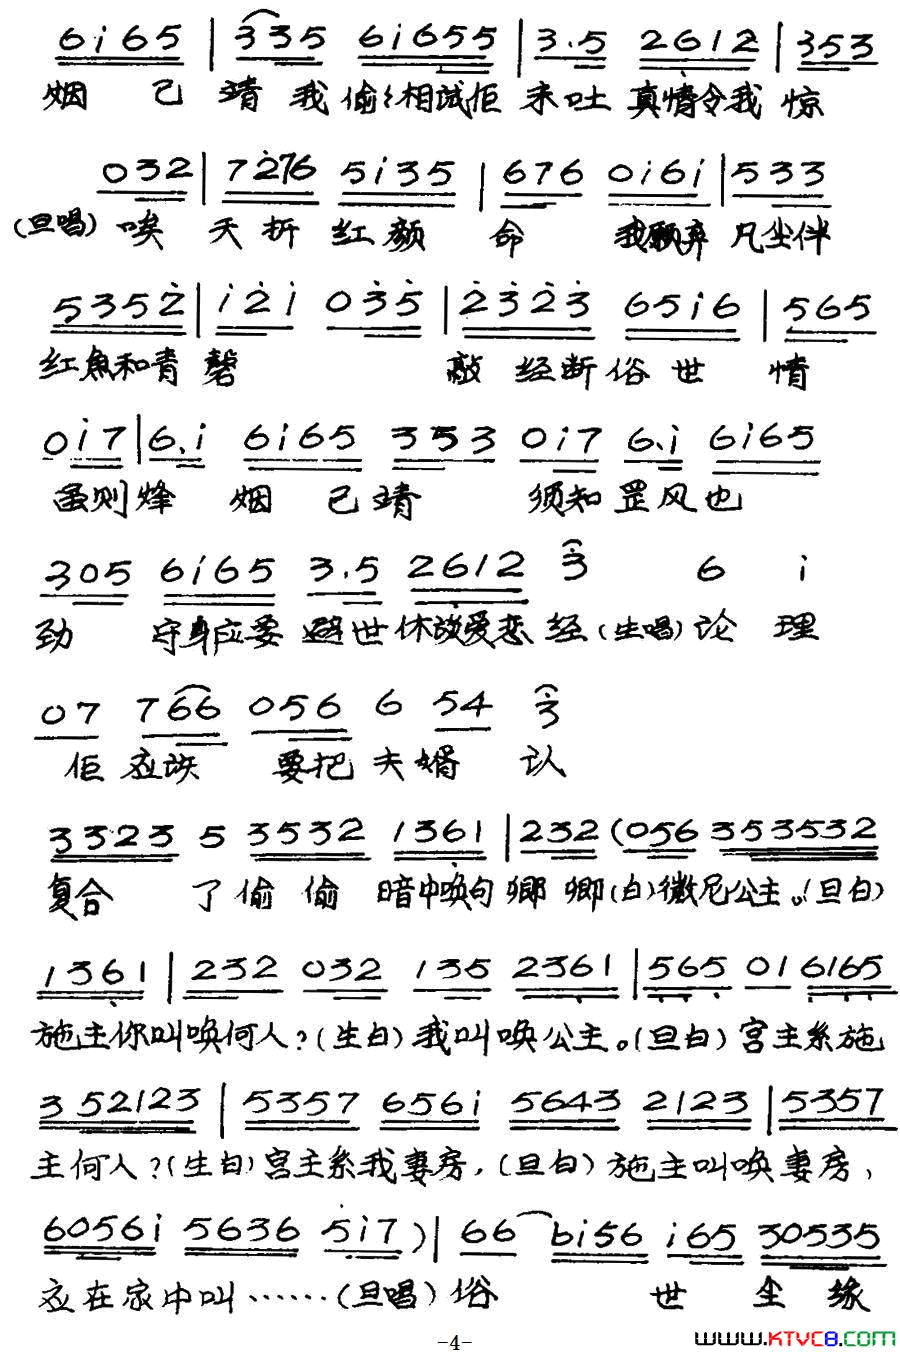 6i65 | 335 6i655 | 3.5 2612 | 353
烟 已 靖 我 偷彡相试佢 未吐 真情令我 惊
032 | 7276 5i35 | 676 0i6i | 533
(旦唱) 唉 夭折 红颜 命 我愿弃 凡尘伴
5352 | i2i 035 | 2323 65i6 | 565
红鱼和青 磬 敲 经断俗世 情
0i7 | 6.i 6i65 353 0i7 6.i 6i65
虽则烽 烟 已靖 须知 罡风也
305 6i65 3.5 2612 3 6 i
劲 守身应要 避世休谈爱恋 经(生唱)论 理
07 766 056 6 54 3
佢 应该 要把 夫婿 认
3323 5 3532 1361 | 232 (056 353532
复合 了偷 偷 暗中唤句 卿 卿(白)微尼公主。(旦白)
1361 | 232 032 135 2361 | 565 01 6165
施主你叫唤何人?(生白)我叫唤公主。(旦白)宫主系施
352123 | 5357 656i 5643 2123 | 5357
主何人?(生白)宫主系我妻房,(旦白)施主叫唤妻房,
6056i 5636 5i7) | 66 6i56 i65 30535
应在家中叫……(旦唱)俗 世 尘 缘
-4-
WWW.KTVC8.COM